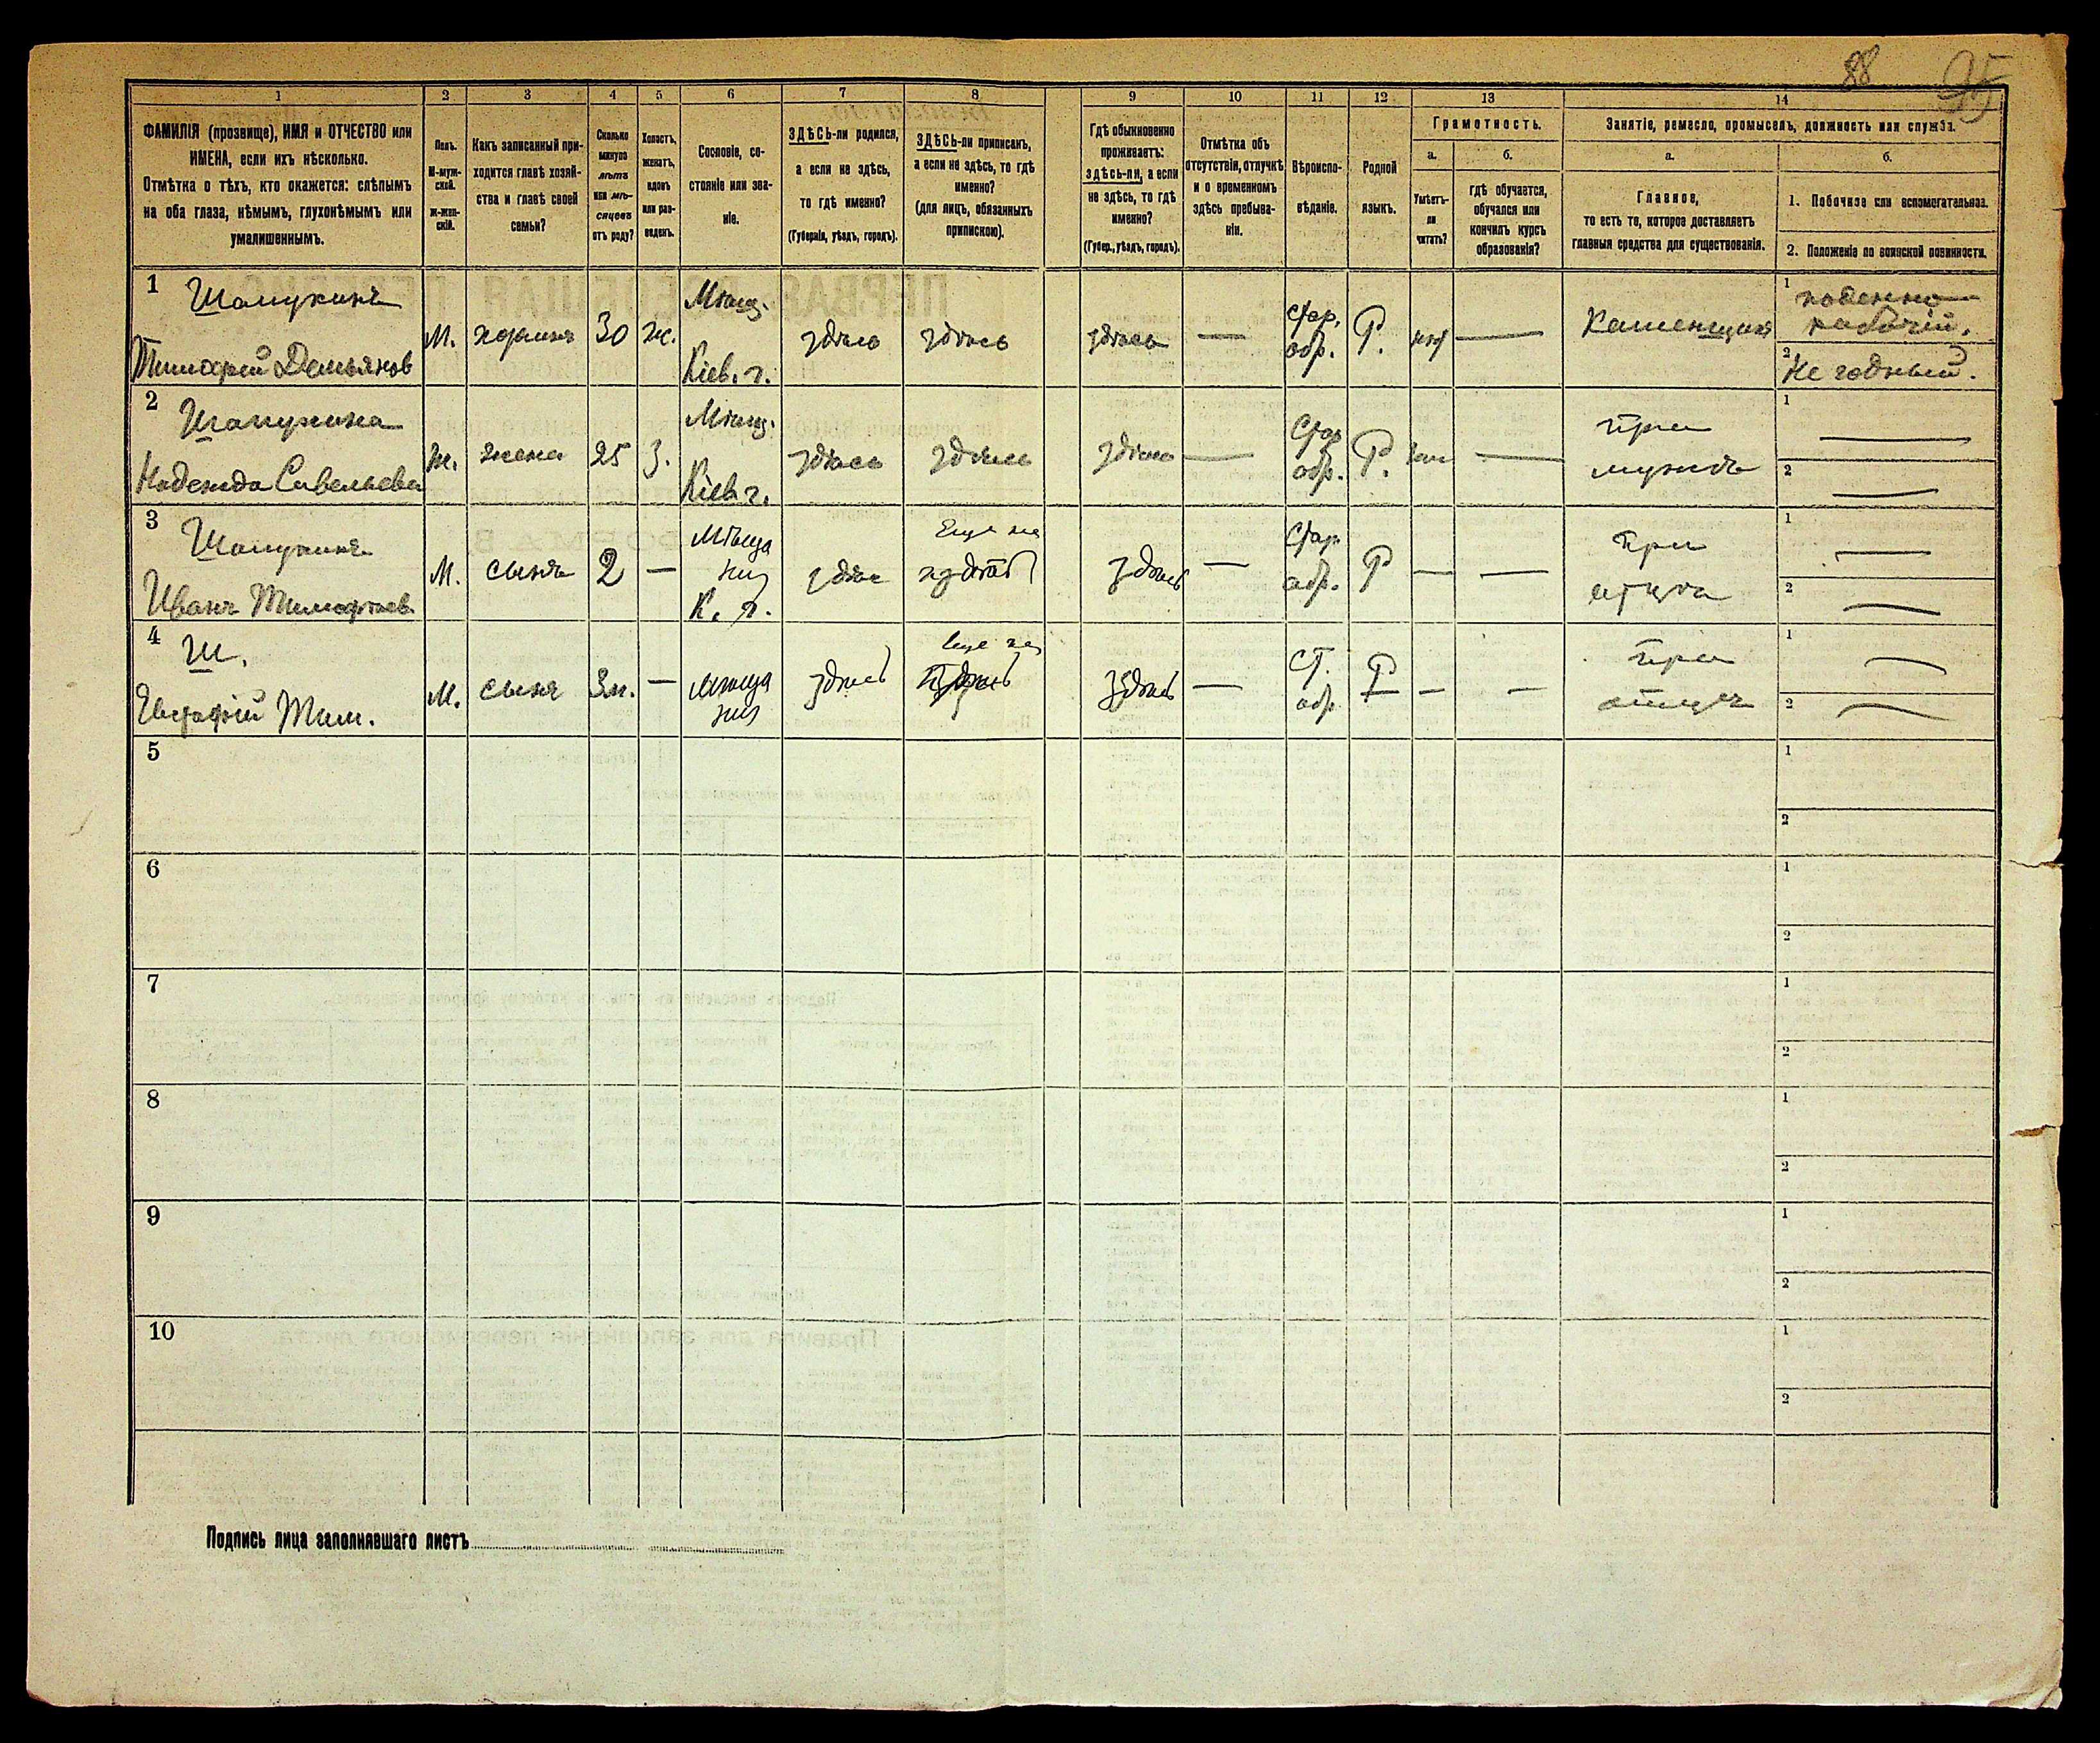 88 95
1
2
3
4
5
6
7
8
9
10
11
12
13
14
ФАМИЛІЯ (прозвище), ИМЯ и ОТЧЕСТВО или
ИМЕНА, если ихъ нѣсколько.
Отмѣтка о тѣхъ, кто окажется: слѣпымъ
на оба глаза, нѣмымъ, глухонѣмымъ или
умалишеннымъ.
Полъ.
М-муж-
ской.
ж-жен-
скій.
Какъ записанный при-
ходится главѣ хозяй-
ства и главѣ своей
семьи?
Сколько
минуло
лѣтъ
или мѣ-
сяцевъ
отъ роду?
Холостъ,
женатъ,
вдовъ
или раз-
веденъ.
Сословіе, со-
стояніе или зва-
ніе.
ЗДѢСЬ-ли родился,
а если не здѣсь,
то гдѣ именно?
(Губернія, уѣздъ, городъ).
ЗДѢСЬ-ли приписанъ,
а если не здѣсь, то гдѣ
именно?
(для лицъ, обязанныхъ
припискою).
Гдѣ обыкновенно
проживаетъ:
здѣсь-ли, а если
не здѣсь, то гдѣ
именно?
(Губер., уѣздъ, городъ).
Отмѣтка объ
отсутствіи, отлучкѣ
и о временномъ
здѣсь пребыва-
ніи.
Вѣроиспо-
вѣданіе.
Родной
языкъ.
Грамотность.
а.
Умѣетъ-
ли
читать?
б.
гдѣ обучается,
обучался или
кончилъ курсъ
образованія?
Занятіе, ремесло, промыселъ, должность или служба.
а.
Главное,
то есть то, которое доставляетъ
главныя средства для существованія.
б.
1. Побочное или вспомогательное.
2. Положеніе по воинской повинности.
1
Шапукинъ
Тимофей Демьянов
М.
хозяинъ
30
ж.
Мѣщ.
Кіев. г.
здѣсь
здѣсь
здѣсь
—
стар.
обр.
Р.
—
Каменщикъ
1
поденно
рабочій.
2
Не годный.
2
Шапукина
Надежда Савельева
ж.
жена
25
З.
Мѣщ.
Кіев г.
здѣсь
здѣсь
здѣсь
—
Стар
обр.
Р.
—
При
мужѣ
1
—
2
—
3
Шапукинъ
Иванъ Тимофѣев.
М.
сынъ
2
—
Мѣща
нин
К. г.
здѣс
Еще не
здѣсь
—
Стар
обр.
Р
—
—
При
отцѣ
1
—
2
—
4
Ш.
Евстафій Тим.
М.
сынъ
3м.
—
Мѣща
нин
здѣсь
Еще не
здѣсь
—
Ст.
обр
Р
—
—
При
отцѣ
1
—
2
—
5
1
2
6
1
2
7
1
2
8
1
2
9
1
2
10
1
2
Подпись лица заполнявшаго листъ